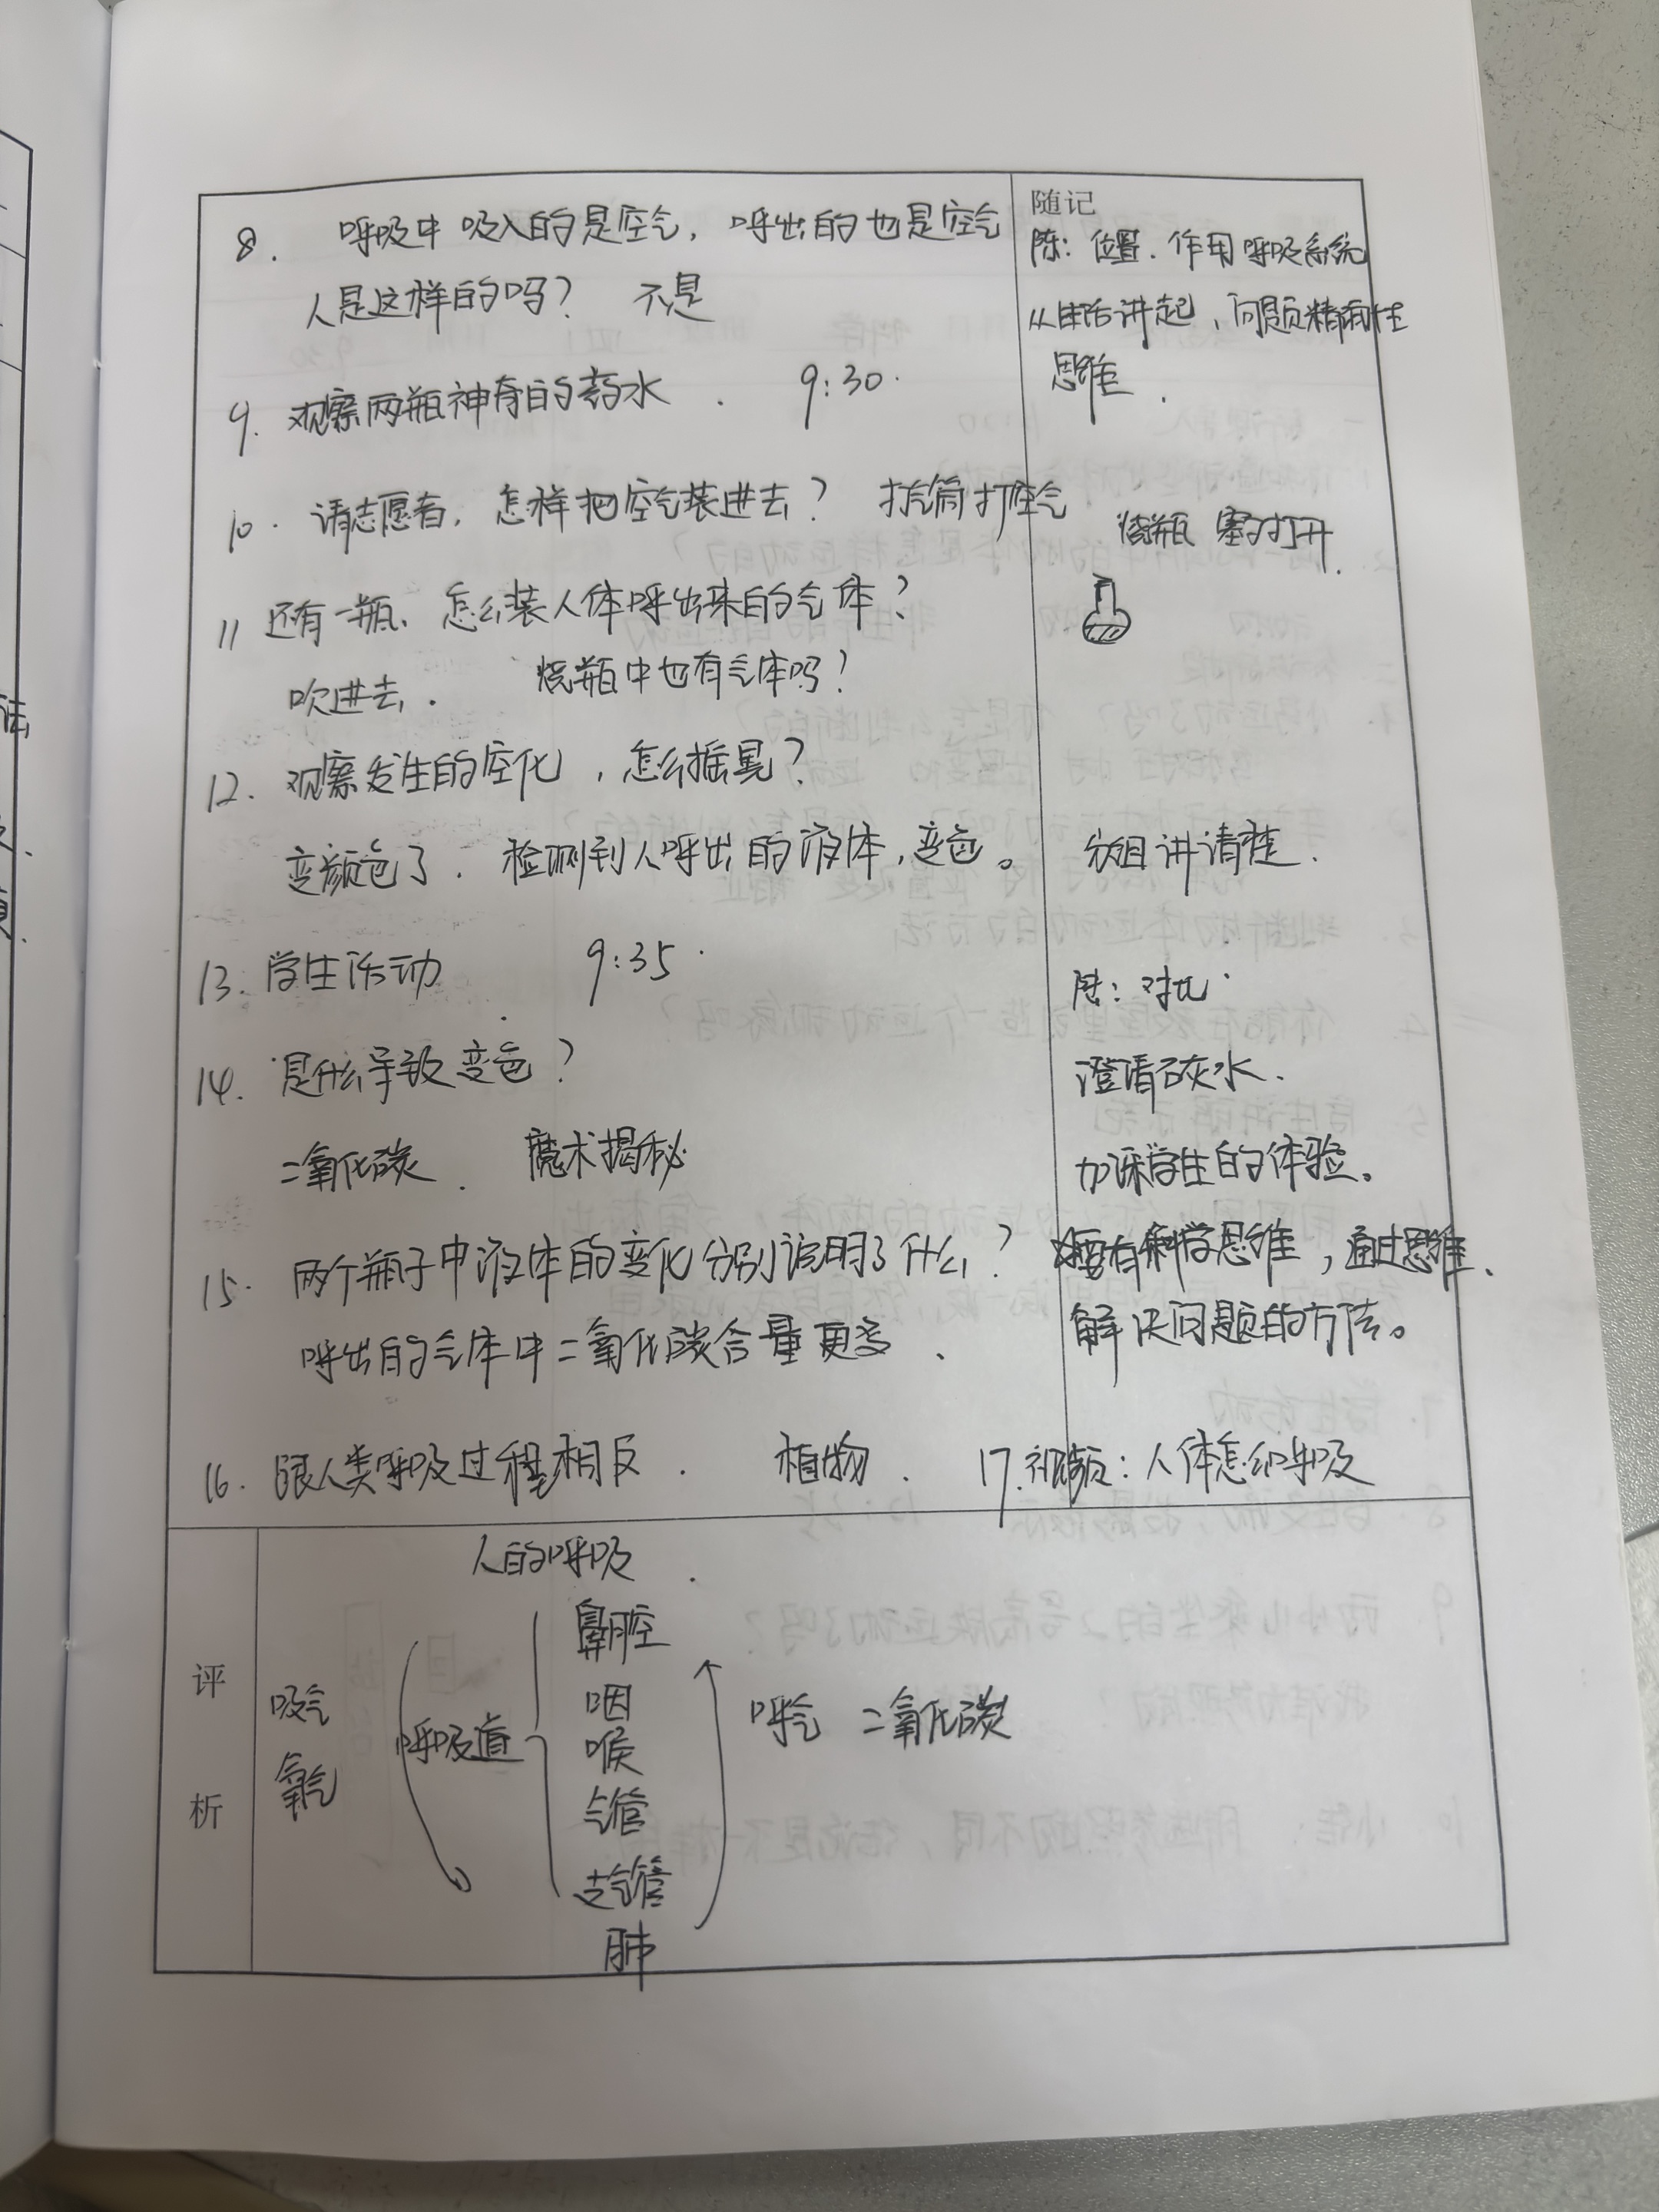 8. 呼吸中吸入的是空气，呼出的也是空气
人是这样的吗？ 不是
9. 观察两瓶神奇的药水. 9:30.
10. 请志愿者，怎样把空气装进去？ 打气筒打空气
11 还有一瓶、怎么装人体呼出来的气体？
吹进去. 烧瓶中也有气体吗？
12. 观察发生的变化，怎么摇晃？
变颜色了. 检测到人呼出的液体，变色。
13. 学生活动 9:35.
14. 是什么导致变色？
二氧化碳. 魔术揭秘
15. 两个瓶子中液体的变化分别说明了什么？
呼出的气体中二氧化碳含量更多.
16. 跟人类呼吸过程相反. 植物. 17. 视频：人体怎么呼吸
随记
陈：位置. 作用 呼吸系统
从生活讲起，问题精
思维.
烧瓶 塞子打开.
分组讲清楚.
陈：对比
澄清石灰水.
加深学生的体验。
要有科学思维，通过思维、
解决问题的方法。
评析
人的呼吸.
吸气
氧气
呼吸道
鼻腔
咽
喉
气管
支气管
肺
呼气 二氧化碳